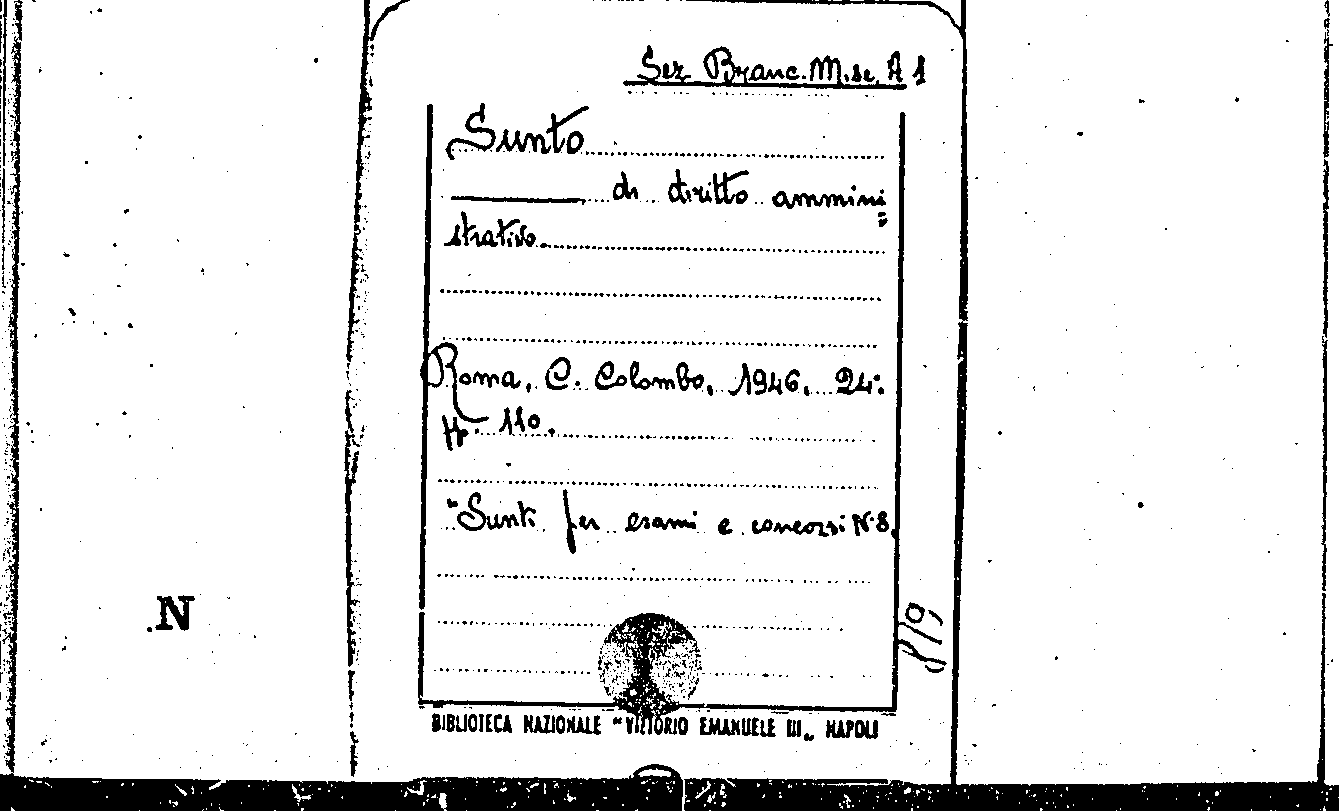 Sez Branc. Misc. A 1
Sunto
di diritto ammini=
strativo.
Roma, C. Colombo, 1946. 24°.
pp. 110.
"Sunti per esami e concorsi N. 8.
8/9
N
BIBLIOTECA NAZIONALE "VITTORIO EMANUELE III„ NAPOLI